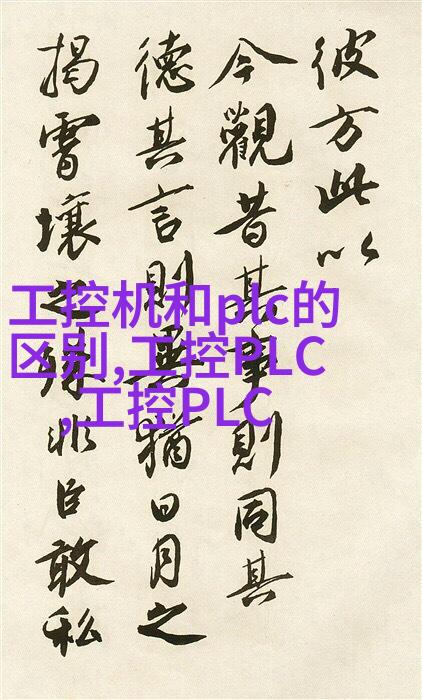 彼方此以
今觀昔其事則同其
德其言則異猶日月之
揭霄壤之殊非臣敢私
工控机和plc的
区别,工控PLC
,工控PLC